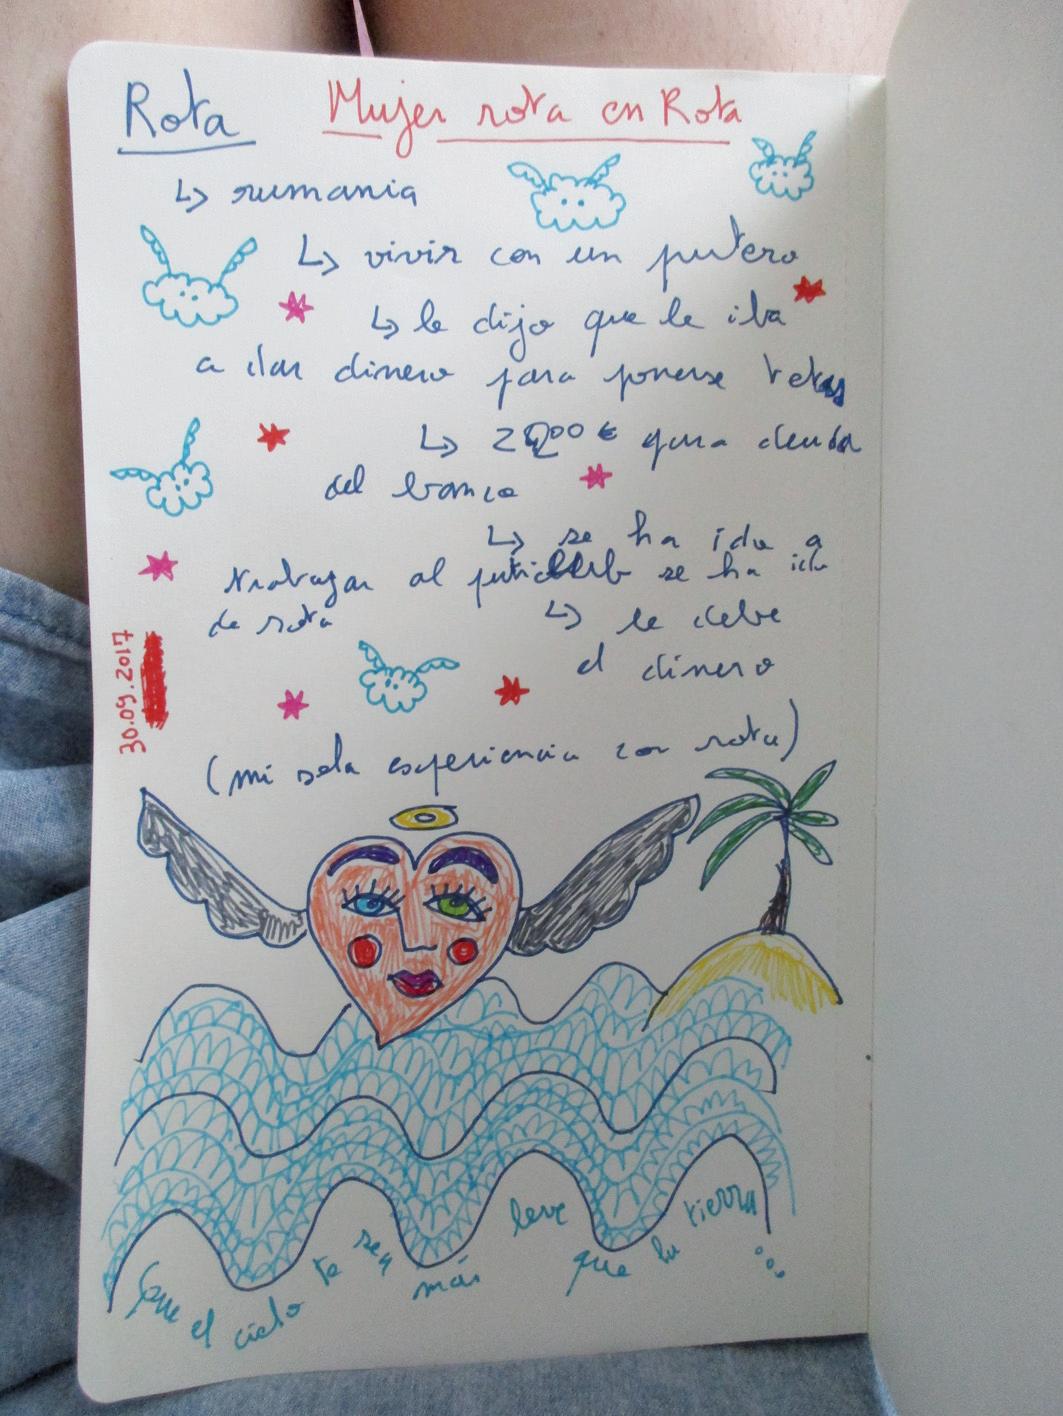 Rota Mujer rota en Rota
↳ rumania
↳ vivir con un putero
↳ le dijo que le iba
a dar dinero para ponerse tetas
↳ 2000 € para deuda
del banco
↳ se ha ido a
trabajar al puticlub se ha ido
de rota
↳ le debe
el dinero
30.09.2017
(mi sola experiencia con rota)
Que el cielo te sea más leve que la tierra...